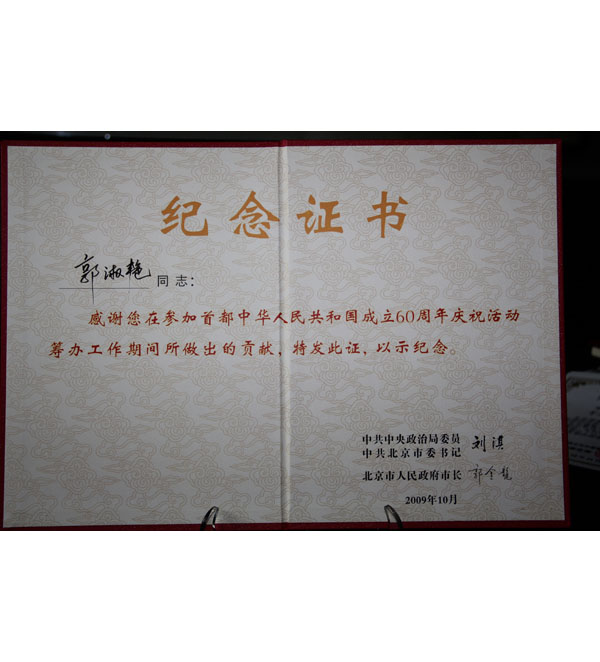 纪念证书
郭淑艳 同志：
感谢您在参加首都中华人民共和国成立60周年庆祝活动
筹办工作期间所做出的贡献，特发此证，以示纪念。
中共中央政治局委员
中共北京市委书记 刘淇
北京市人民政府市长 郭金龙
2009年10月